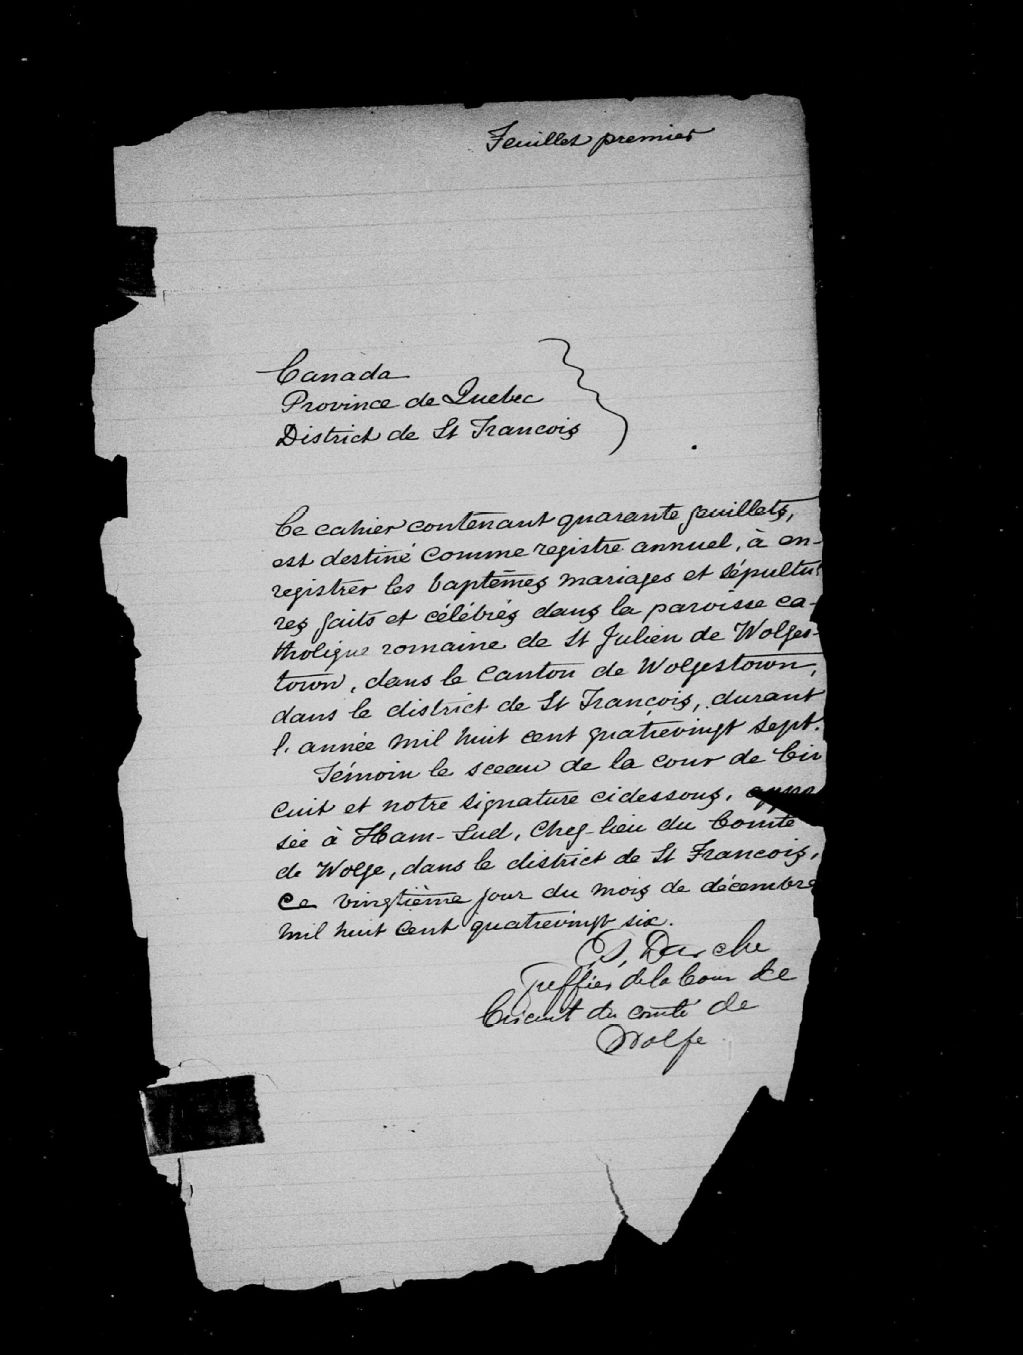 Feuillet premier
Canada
Province de Quebec
District de St Francois
Ce cahier contenant quarante feuillets,
est destiné comme registre annuel, à en-
registrer les baptêmes mariages et sépultu-
res faits et célébrés dans la paroisse ca-
tholique romaine de St Julien de Wolfes-
town, dans le Canton de Wolfestown,
dans le district de St François, durant
l'année mil huit cent quatrevingt sept.
Témoin le sceau de la cour de Cir
cuit et notre signature cidessous, appo
sée à Ham-Sud, Chef-lieu du Comté
de Wolfe, dans le district de St Francois,
ce vingtième jour du mois de décembre
mil huit cent quatrevingt six.
C, S, Darche
Greffier de la Cour de
Circuit du comté de
Wolfe